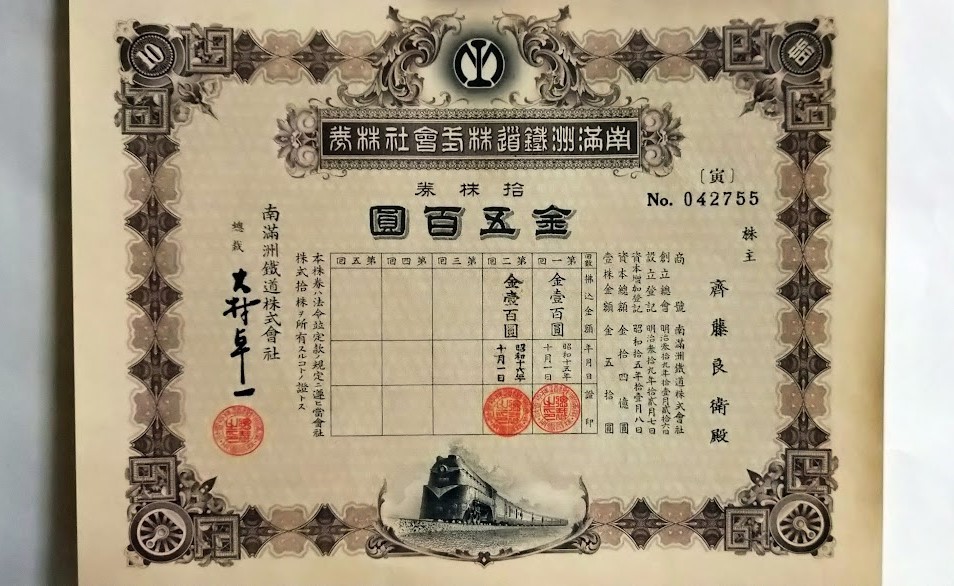 10
拾
南滿洲鐵道株式會社株券
拾株券
金五百圓
〔寅〕
No. 042755
株主
齊藤良衛殿
商號 南滿洲鐵道株式會社
創立總會 明治參拾九年拾壹月貳拾六日
設立登記 明治參拾九年拾貳月七日
資本增加登記 昭和拾五年拾壹月八日
資本總額 金拾四億圓
壹株金額 金五拾圓
回數 拂込金額 年月日 證印
第一回 金壹百圓 昭和十五年十月一日
第二回 金壹百圓 昭和十六年十月一日
第三回
第四回
第五回
本株券ハ法令竝定款ノ規定ニ遵ヒ當會社
株式拾株ヲ所有スルコトノ證トス
南滿洲鐵道株式會社
總裁 大村卓一